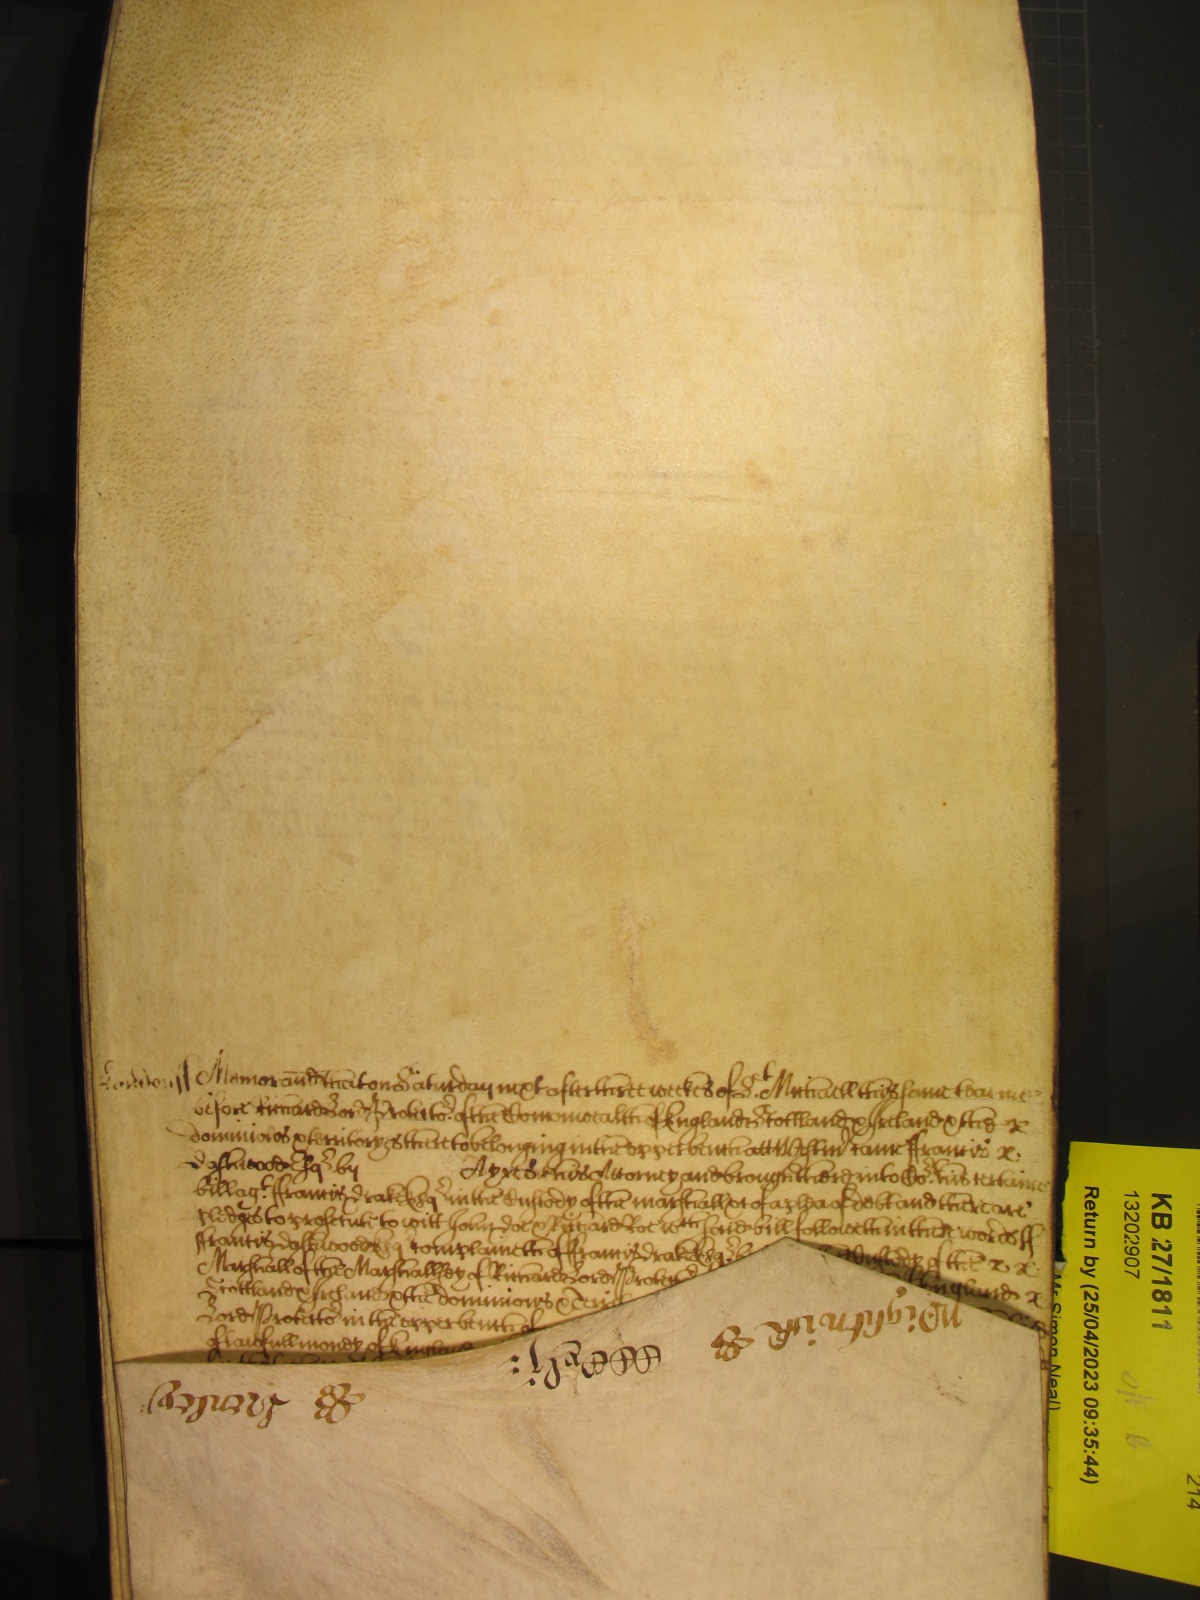 London ss Memorand that on Saturday next after three weekes of St. Michaell this same tearme
before Richard Lord Protector of the Comonwealth of England Scotland & Ireland & the
dominions & territoryes there to belonging in the upper bench att Westm came Francis
dashwood Esq by Ayres his Attorney and brought here into Cort his certaine
bill agt Francis drake Esq in the Custody of the marshall &c of a plea of debt and there are
pledges to prosecute to witt John doe & Richard Roe wch said bill followeth in these words ss
Francis dashwood Esq complaineth of Francis drake Esq Custody of the
Marshall of the Marshallsey of Richard Lord Protector England
Scotland & Ireland & the dominions &
Lord Protector in the upper bench
of lawfull money of England
Wightwick
Henley
KB 27/1811
13202907
Return by (25/04/2023 09:35:44)
Mr Simon Neal
214